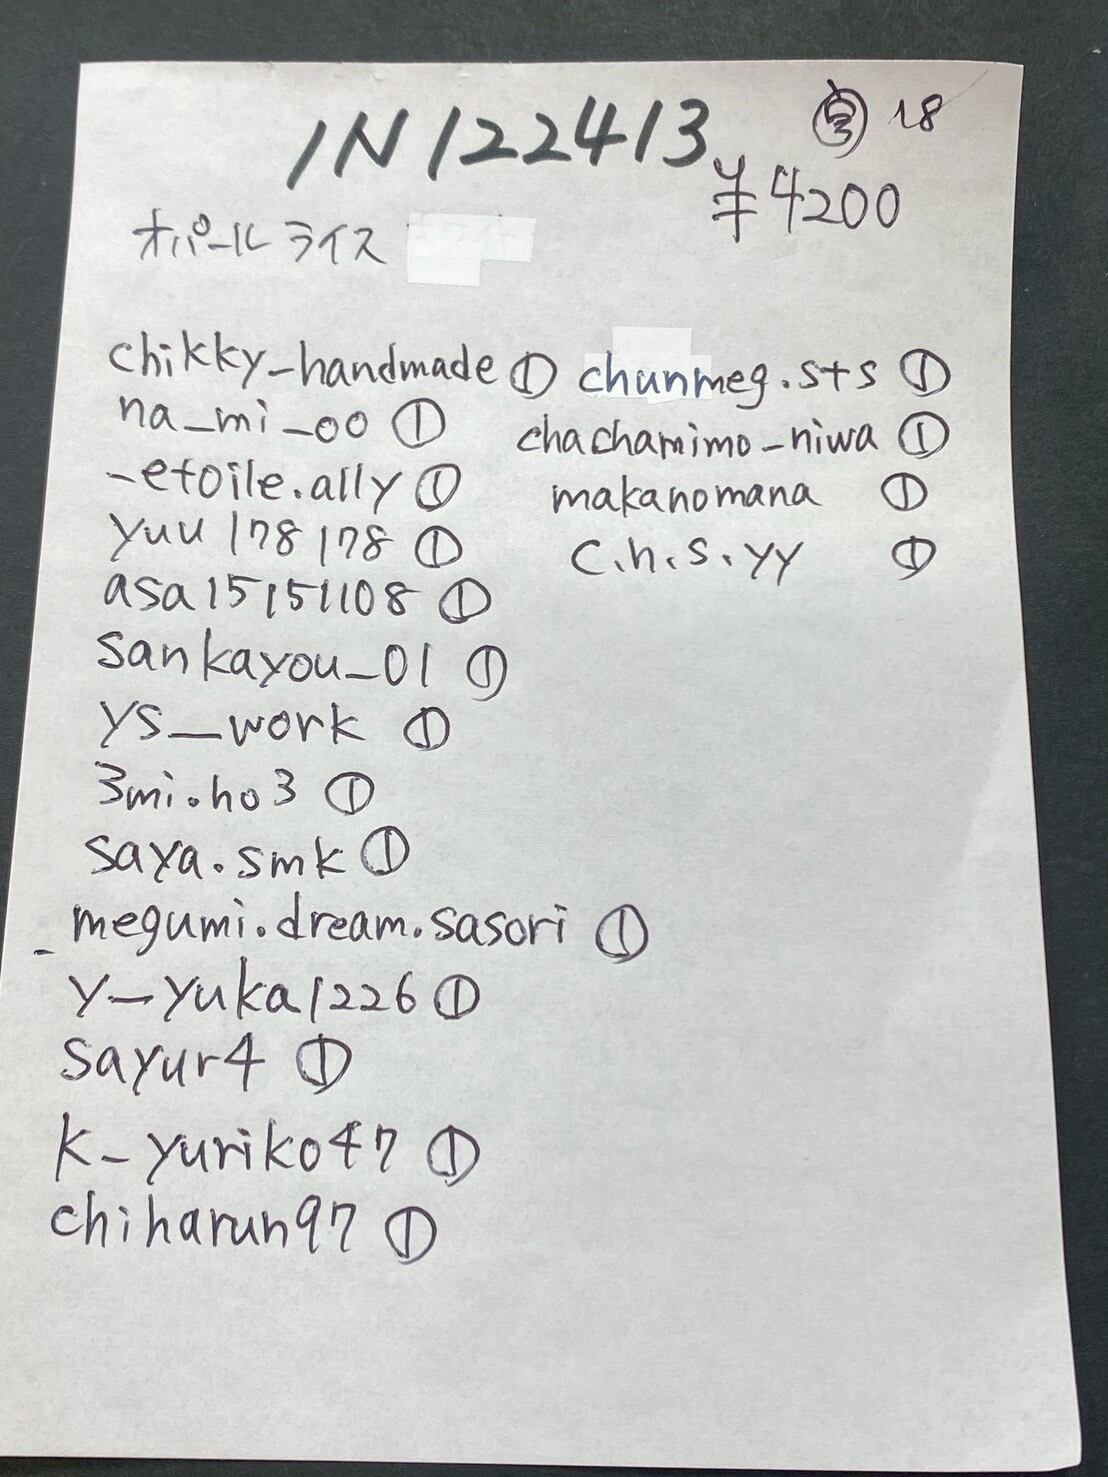 IN122413
18
¥4200
オパールライス
chikky_handmade ①
na_mi_oo ①
-etoile.ally ①
yuu178178 ①
asa15151108 ①
sankayou_01 ①
ys__work ①
3mi.ho3 ①
saya.smk ①
_megumi.dream.sasori ①
y_yuka1226 ①
sayur4 ①
k_yuriko47 ①
chiharun97 ①
chunmeg.sts ①
chachamimo_niwa ①
makanomana ①
c.h.s.yy ①